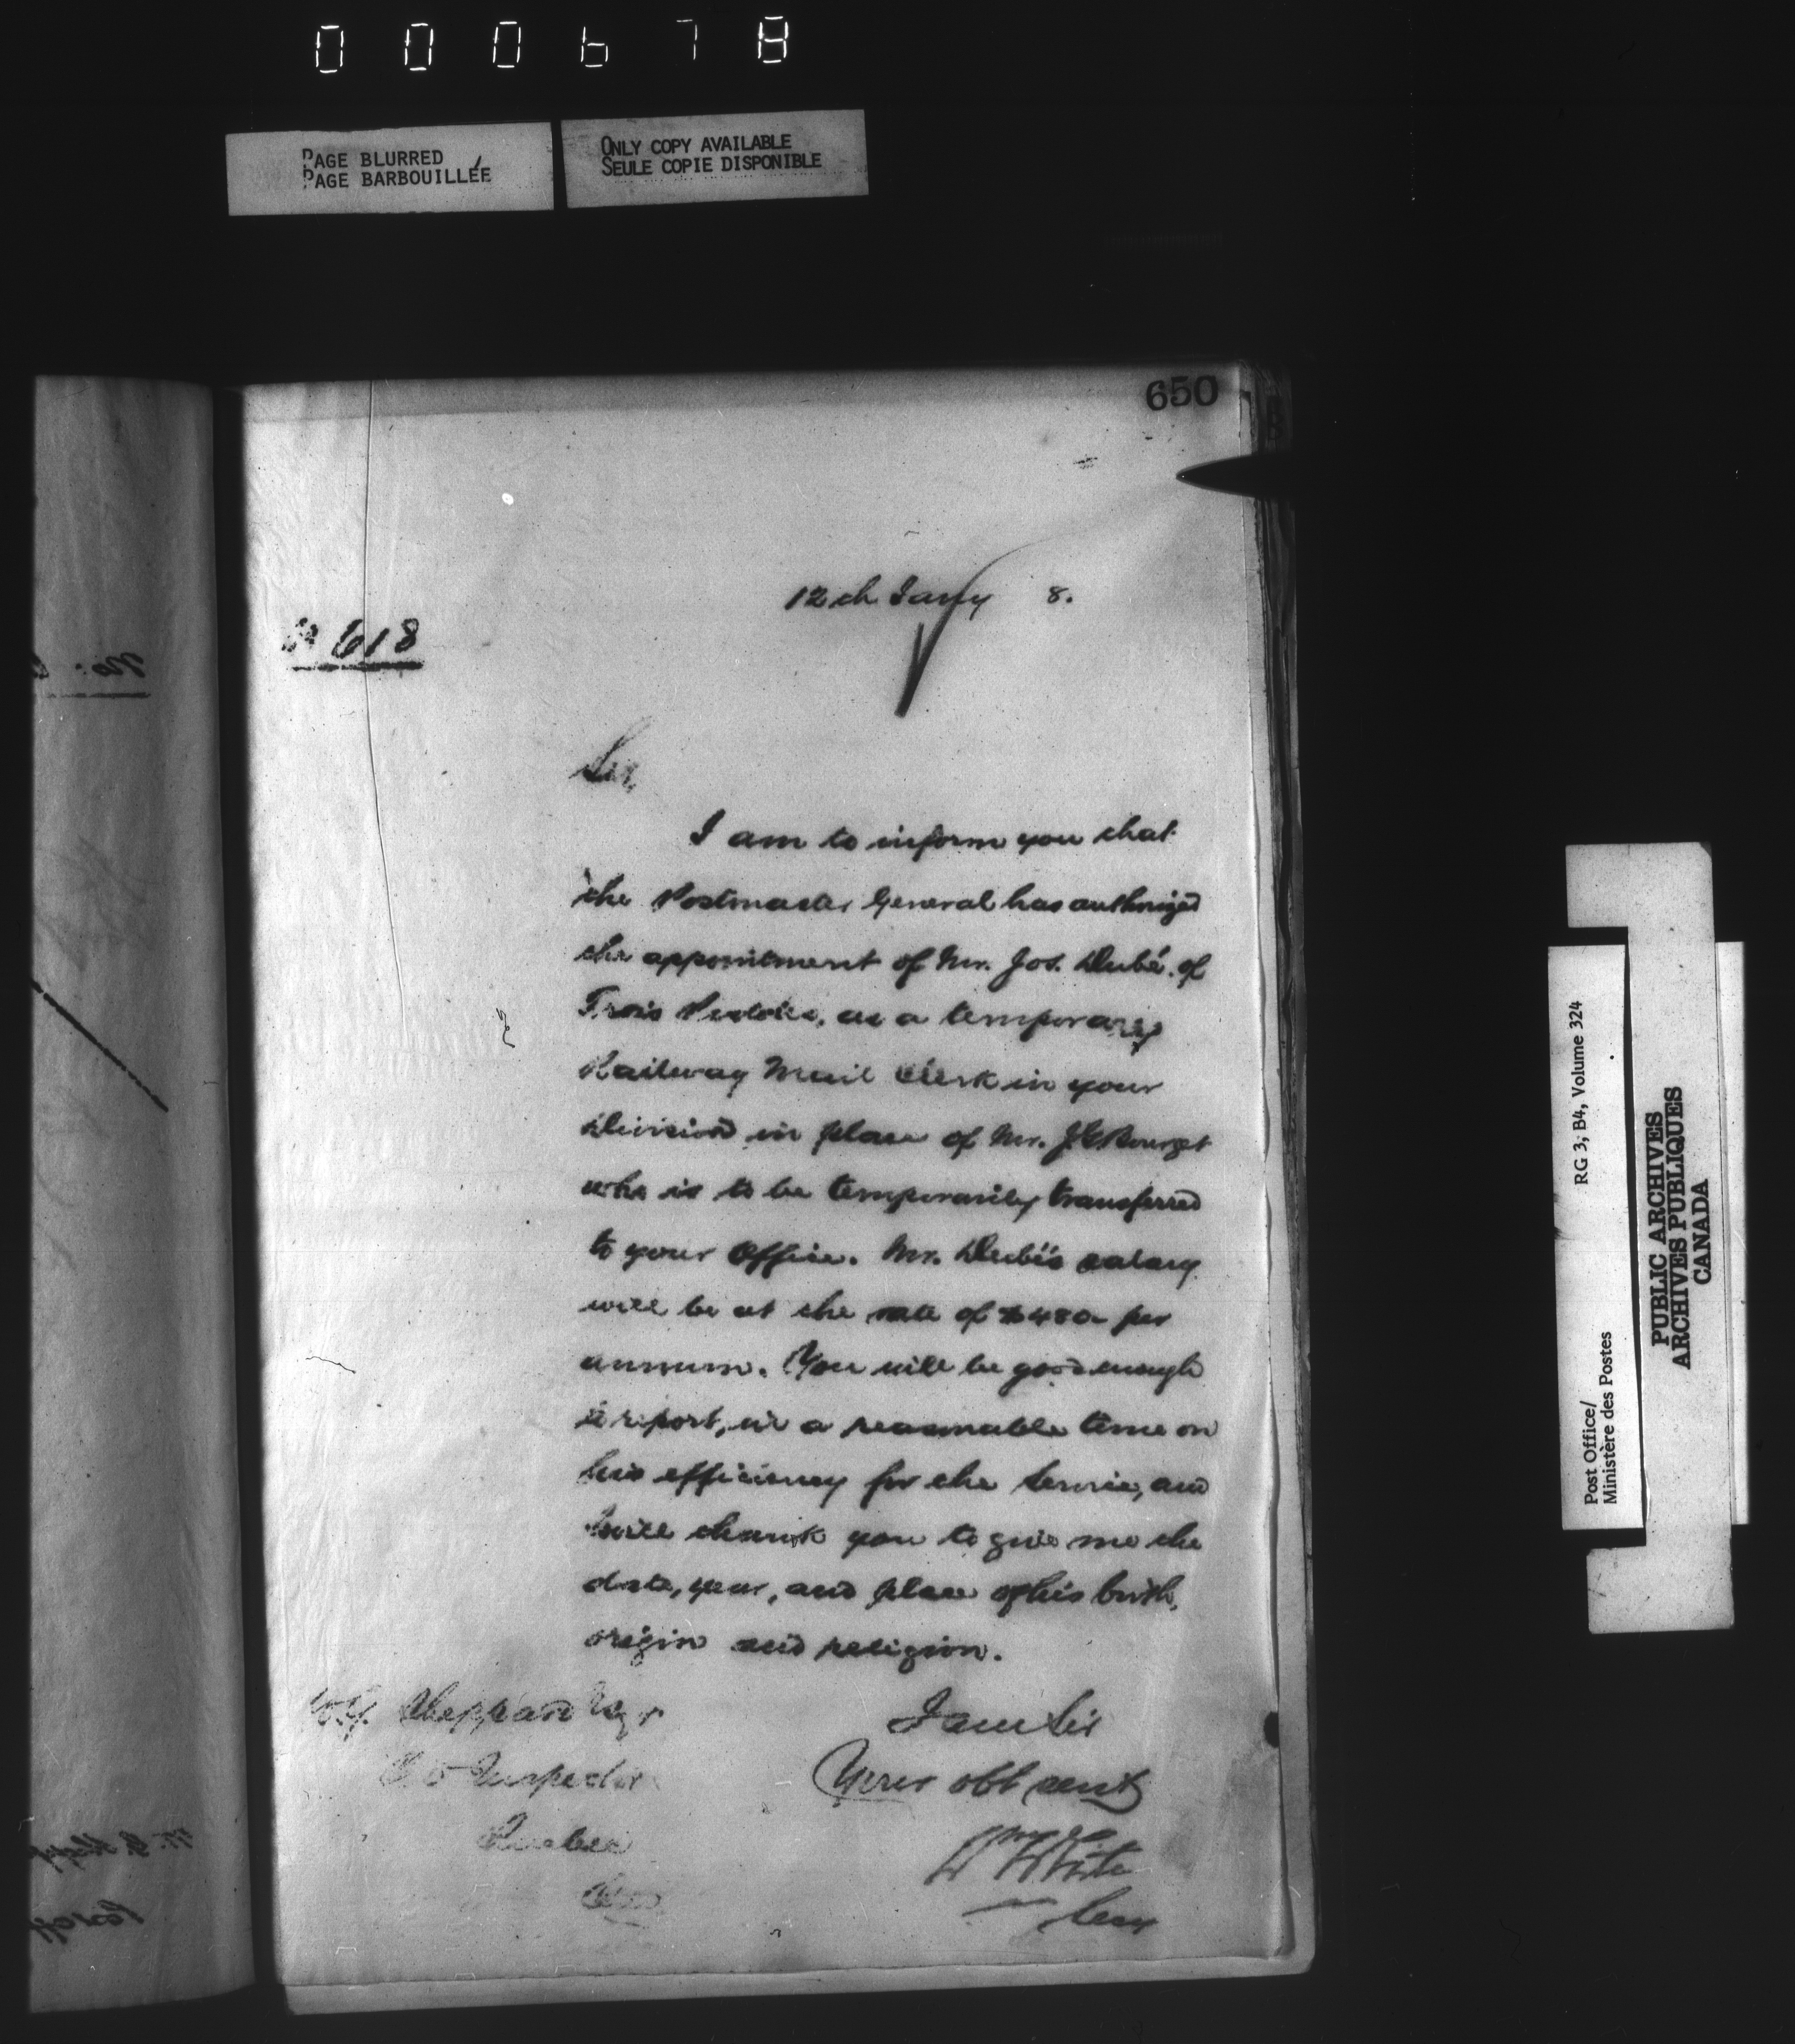 000678
PAGE BLURRED
PAGE BARBOUILLÉE
ONLY COPY AVAILABLE
SEULE COPIE DISPONIBLE
650
12th Jany 8.
618
Sir,
I am to inform you that
the Postmaster General has authorized
the appointment of Mr. Jos. Dubé of
Trois Pistoles, as a temporary
Railway Mail Clerk in your
Division in place of Mr. Bourget
who is to be temporarily transferred
to your Office. Mr. Dubé's salary
will be at the rate of $480 per
annum. You will be good enough
to report, in a reasonable time on
his efficiency for the Service, and
I will thank you to give me the
date, year, and place of his birth,
origin and religion.
I am Sir
Your obt servt
Wm White
Secy
W.G. Sheppard Esqr
P.O Inspector
Quebec
RG 3, B4, Volume 324
Post Office/
Ministère des Postes
PUBLIC ARCHIVES
ARCHIVES PUBLIQUES
CANADA